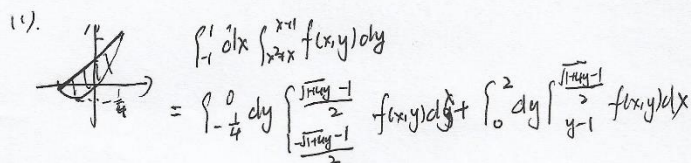 (1).
∫_{-1}^{1} dx ∫_{x²+x}^{x+1} f(x,y)dy
-1/4
= ∫_{-1/4}^{0} dy ∫_{(-√(1+4y)-1)/2}^{(√(1+4y)-1)/2} f(x,y)dx + ∫_{0}^{2} dy ∫_{y-1}^{(√(1+4y)-1)/2} f(x,y)dx